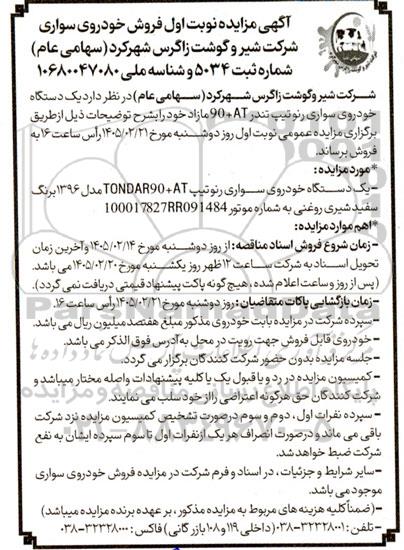 آگهی مزایده نوبت اول فروش خودروی سواری
شرکت شیر و گوشت زاگرس شهرکرد (سهامی عام)
شماره ثبت ۵۰۳۴ و شناسه ملی ۱۰۶۸۰۰۴۷۰۸۰
شرکت شیر وگوشت زاگرس شهرکرد (سهامی عام) در نظر دارد یک دستگاه
خودروی سواری رنو تیپ تندر 90+AT مازاد خود را بشرح توضیحات ذیل ازطریق
برگزاری مزایده عمومی نوبت اول روز دوشنبه مورخ ۱۴۰۵/۰۲/۲۱ رأس ساعت ۱۶ به
فروش برساند.
*مورد مزایده:
-یک دستگاه خودروی سواری رنو تیپ TONDAR90+AT مدل ۱۳۹۶ برنگ
سفید شیری روغنی به شماره موتور 100017827RR091484
*اهم موارد مزایده:
- زمان شروع فروش اسناد مناقصه: از روز دوشنبه مورخ ۱۴۰۵/۰۲/۱۴ وآخرین زمان
تحویل اسناد به شرکت ساعت ۱۲ظهر روز یکشنبه مورخ ۱۴۰۵/۰۲/۲۰ می باشد.
(پس از روز و ساعت اعلام شده ، هیچ گونه پاکت پیشنهاد قیمتی دریافت نمی گردد).
-زمان بازگشایی پاکات متقاضیان: روز دوشنبه مورخ ۱۴۰۵/۰۲/۲۱ رأس ساعت ۱۶.
-سپرده شرکت در مزایده بابت خودروی مذکور مبلغ هفتصد میلیون ریال می باشد.
-خودروی قابل فروش جهت رویت در محل به آدرس فوق الذکر می باشد.
-جلسه مزایده بدون حضور شرکت کنندگان برگزار می گردد.
-کمیسیون مزایده در رد و یا قبول یک یا کلیه پیشنهادات واصله مختار میباشد و
شرکت کنندگان حق هرگونه اعتراضی را از خود سلب می نمایند.
- سپرده نفرات اول ، دوم و سوم درصورت تشخیص کمیسیون مزایده نزد شرکت
باقی می ماند و درصورت انصراف هر یک از نفرات اول تا سوم سپرده ایشان به نفع
شرکت ضبط خواهد شد.
-سایر شرایط و جزئیات ، در اسناد و فرم شرکت در مزایده فروش خودروی سواری
موجود می باشد.
-(ضمناً کلیه هزینه های مربوط به مزایده مذکور ، بر عهده برنده مزایده میباشد)
-تلفن : ۳۲۳۲۸۰۰۱-۰۳۸ (داخلی ۱۱۹ و ۱۰۸ بازرگانی) فاکس : ۳۲۳۲۸۰۰۰-۰۳۸